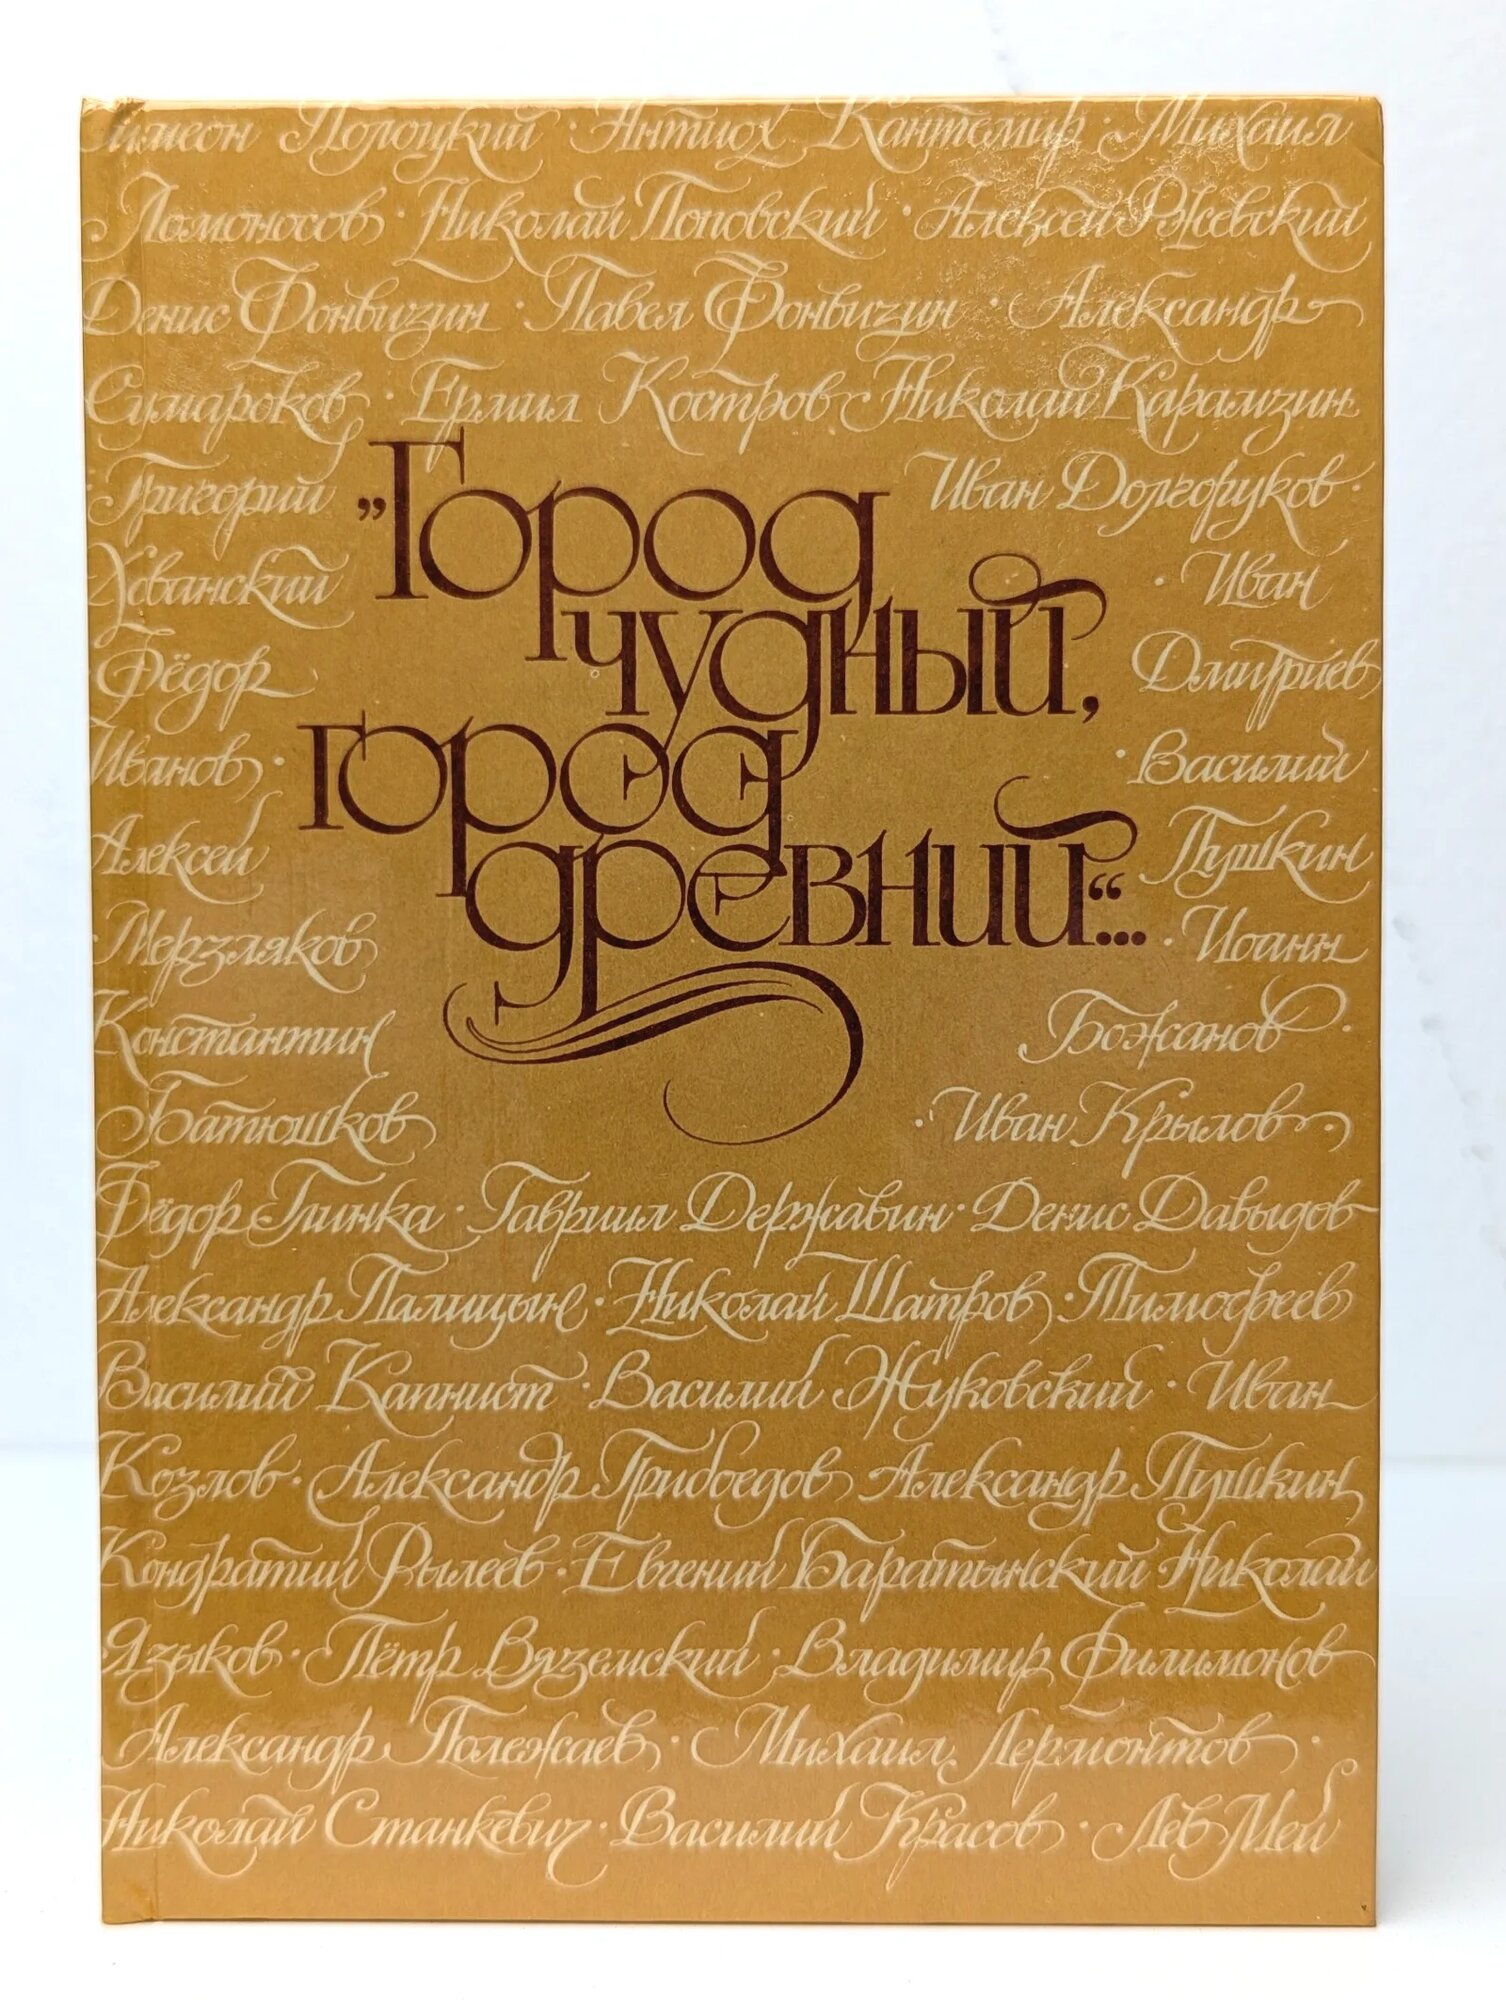 Симеон Полоцкий · Антиох Кантемир · Михаил
Ломоносов · Николай Поповский · Алексей Ржевский
Денис Фонвизин · Павел Фонвизин · Александр
Сумароков · Ермил Костров · Николай Карамзин
Григорий
Иван Долгоруков ·
Хованский
· Иван
Фёдор
Дмитриев
Иванов ·
· Василий
Алексей
Пушкин
Мерзляков
· Иоанн
Константин
Божанов ·
Батюшков
· Иван Крылов ·
„Город
чудный,
город
древний“...
Фёдор Глинка · Гавриил Державин · Денис Давыдов
Александр Палицын · Николай Шатров · Тимофеев
Василий Капнист · Василий Жуковский · Иван
Козлов · Александр Грибоедов Александр Пушкин
Кондратий Рылеев · Евгений Баратынский · Николай
Языков · Пётр Вяземский · Владимир Филимонов
Александр Полежаев · Михаил Лермонтов ·
Николай Станкевич · Василий Красов · Лев Мей